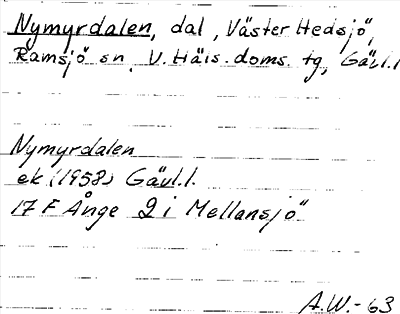 Nymyrdalen, dal, Väster Hedsjö,
Ramsjö sn, V. Häls. doms. tg, Gävl.l
Nymyrdalen
ek. (1958) Gävl.l.
17 F Ånge 2 i Mellansjö
A.W.-63